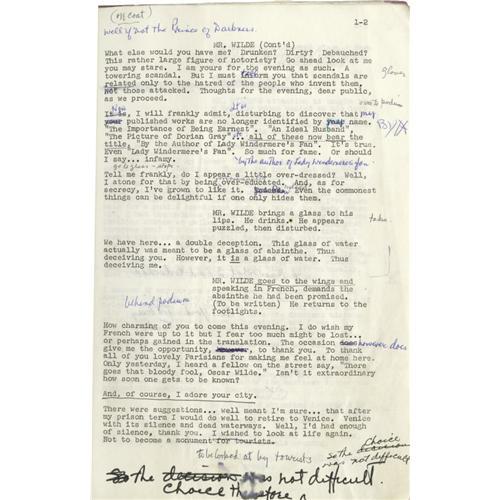 (on coat)
1-2
well if not the Prince of Darkness.
MR. WILDE (Cont'd)
What else would you have me? Drunken? Dirty? Debauched?
This rather large figure of notoriety? Go ahead look at me
you may stare. I am yours for the evening as such. A
towering scandal. But I must inform you that scandals are
related only to the hatred of the people who invent them.
Not those attacked. Thoughts for the evening, dear public,
as we proceed.
gloves
Now
It is, I will frankly admit, disturbing to discover that my
your published works are no longer identified by name.
"The Importance of Being Earnest". "An Ideal Husband",
"The Picture of Dorian Gray", all of these now bear the
title, "By the Author of Lady Windermere's Fan". It's true.
Even "Lady Windermere's Fan". So much for fame. Or should
I say... infamy.
"by the author of Lady Windermeres fan
Tell me frankly, do I appear a little over-dressed? Well,
I atone for that by being over-educated. And, as for
secrecy, I've grown to like it. Even the commonest
things can be delightful if one only hides them.
MR. WILDE brings a glass to his
lips. He drinks. He appears
puzzled, then disturbed.
We have here... a double deception. This glass of water
actually was meant to be a glass of absinthe. Thus
deceiving you. However, it is a glass of water. Thus
deceiving me.
MR. WILDE goes to the wings and
speaking in French, demands the
absinthe he had been promised.
(To be written) He returns to the
footlights.
behind podium
How charming of you to come this evening. I do wish my
French were up to it but I fear too much might be lost...
or perhaps gained in the translation. The occasion however does
give me the opportunity, to thank you. To thank
all of you lovely Parisians for making me feel at home here.
Only yesterday, I heard a fellow on the street say, "There
goes that bloody fool, Oscar Wilde." Isn't it extraordinary
how soon one gets to be known?
And, of course, I adore your city.
There were suggestions... well meant I'm sure... that after
my prison term I would do well to retire to Venice. Venice
with its silence and dead waterways. Well, I'd had enough
of silence, thank you. I wished to look at life again.
Not to become a monument for tourists.
to be looked at by tourists
So the choice
was not difficult
So the decision was not difficult.
Choice therefore